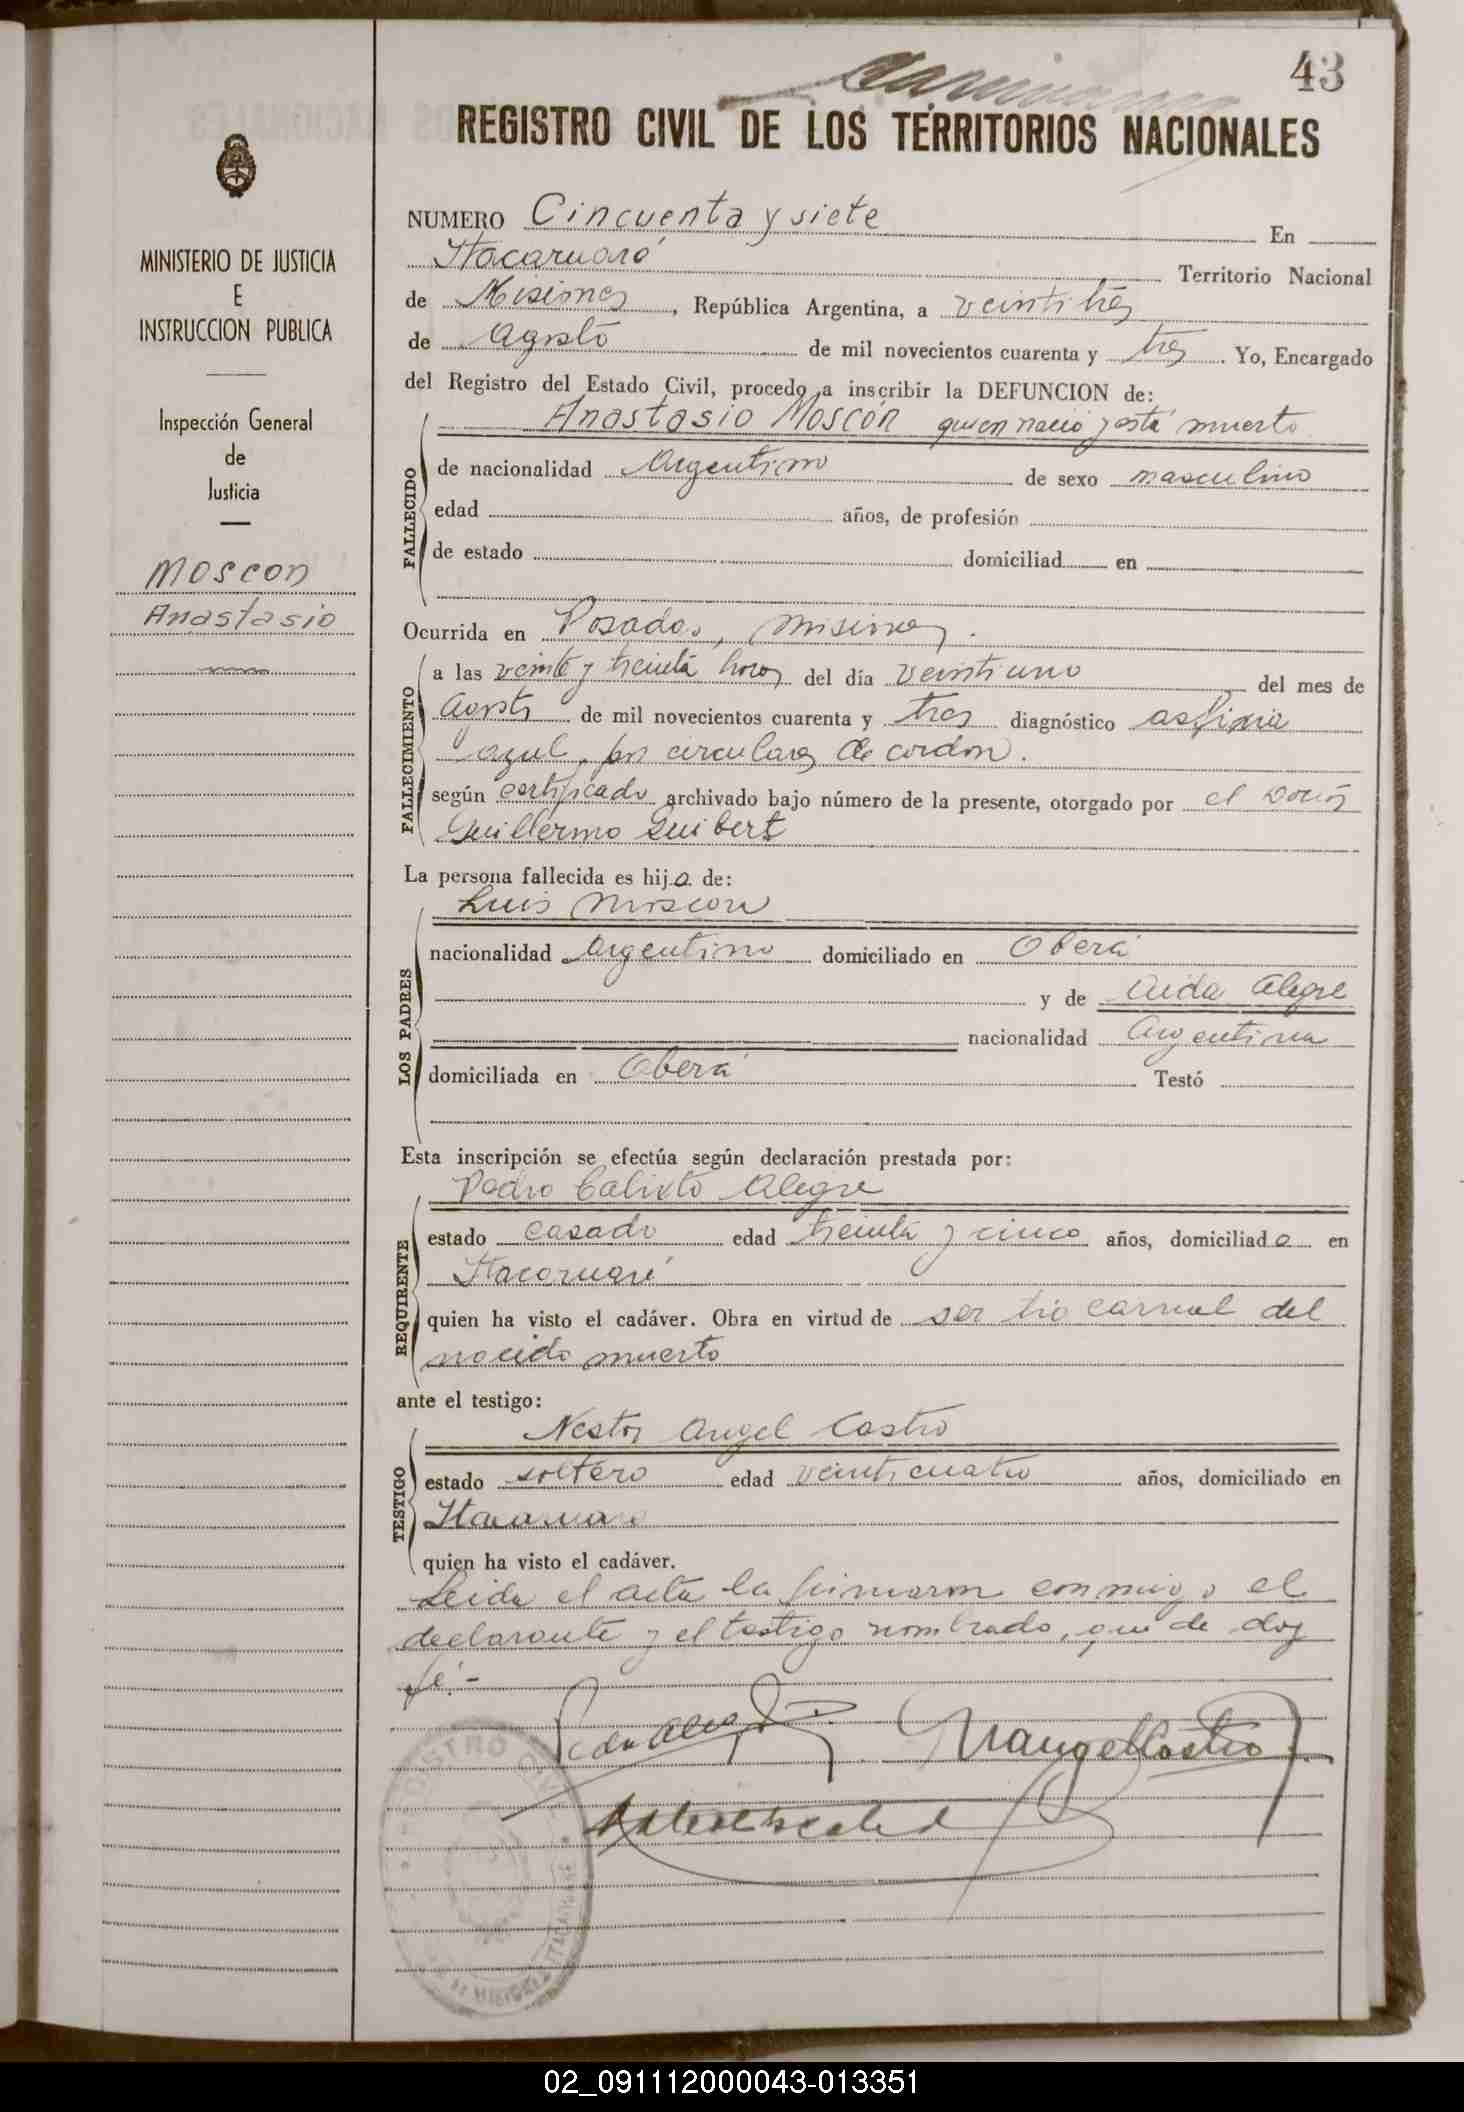 43
REGISTRO CIVIL DE LOS TERRITORIOS NACIONALES
MINISTERIO DE JUSTICIA
E
INSTRUCCION PUBLICA
Inspección General
de
Justicia
Moscon
Anastasio
NUMERO Cincuenta y siete En
Itacaruaré Territorio Nacional
de Misiones, República Argentina, a veintitrés
de Agosto de mil novecientos cuarenta y tres. Yo, Encargado
del Registro del Estado Civil, procedo a inscribir la DEFUNCION de:
Anastasio Moscón quien nació y está muerto
FALLECIDO
de nacionalidad Argentino de sexo masculino
edad años, de profesión
de estado domiciliad en
Ocurrida en Posadas, Misiones.
FALLECIMIENTO
a las veinte y treinta horas del día veintiuno del mes de
Agosto de mil novecientos cuarenta y tres diagnóstico asfixia
azul, por circulares de cordón.
según certificado archivado bajo número de la presente, otorgado por el Doctor
Guillermo Guibert
La persona fallecida es hijo de:
LOS PADRES
Luis Moscon
nacionalidad Argentino domiciliado en Oberá
y de Aida Alegre
nacionalidad Argentina
domiciliada en Oberá Testó
Esta inscripción se efectúa según declaración prestada por:
REQUIRENTE
Pedro Calixto Alegre
estado casado edad treinta y cinco años, domiciliado en
Itacaruaré
quien ha visto el cadáver. Obra en virtud de ser tio carnal del
nacido muerto
ante el testigo:
TESTIGO
Nestor Angel Castro
estado soltero edad veinticuatro años, domiciliado en
Itacaruaré
quien ha visto el cadáver.
Leida el acta la firmaron conmigo el
declarante y el testigo nombrado, que de doy
fé.-
02_091112000043-013351